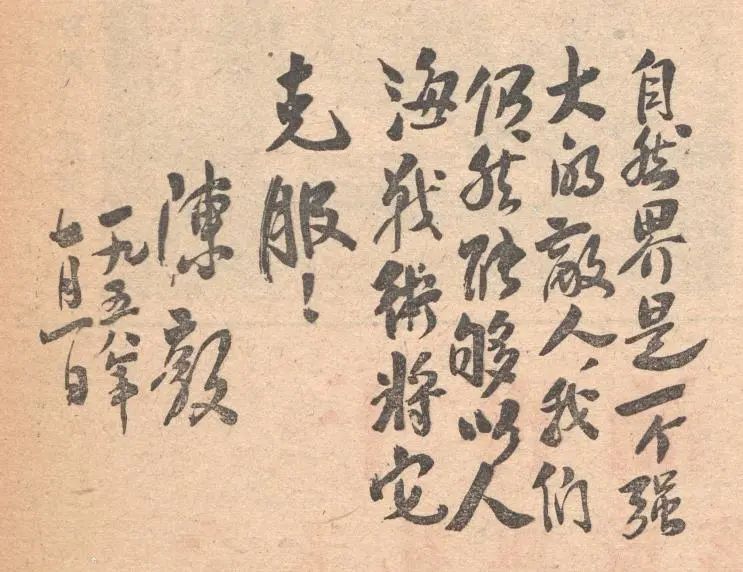 自然界是一个强
大的敌人，我们
仍然能够以人
海战術将它
克服！
陳毅
一九五八年
七月一日